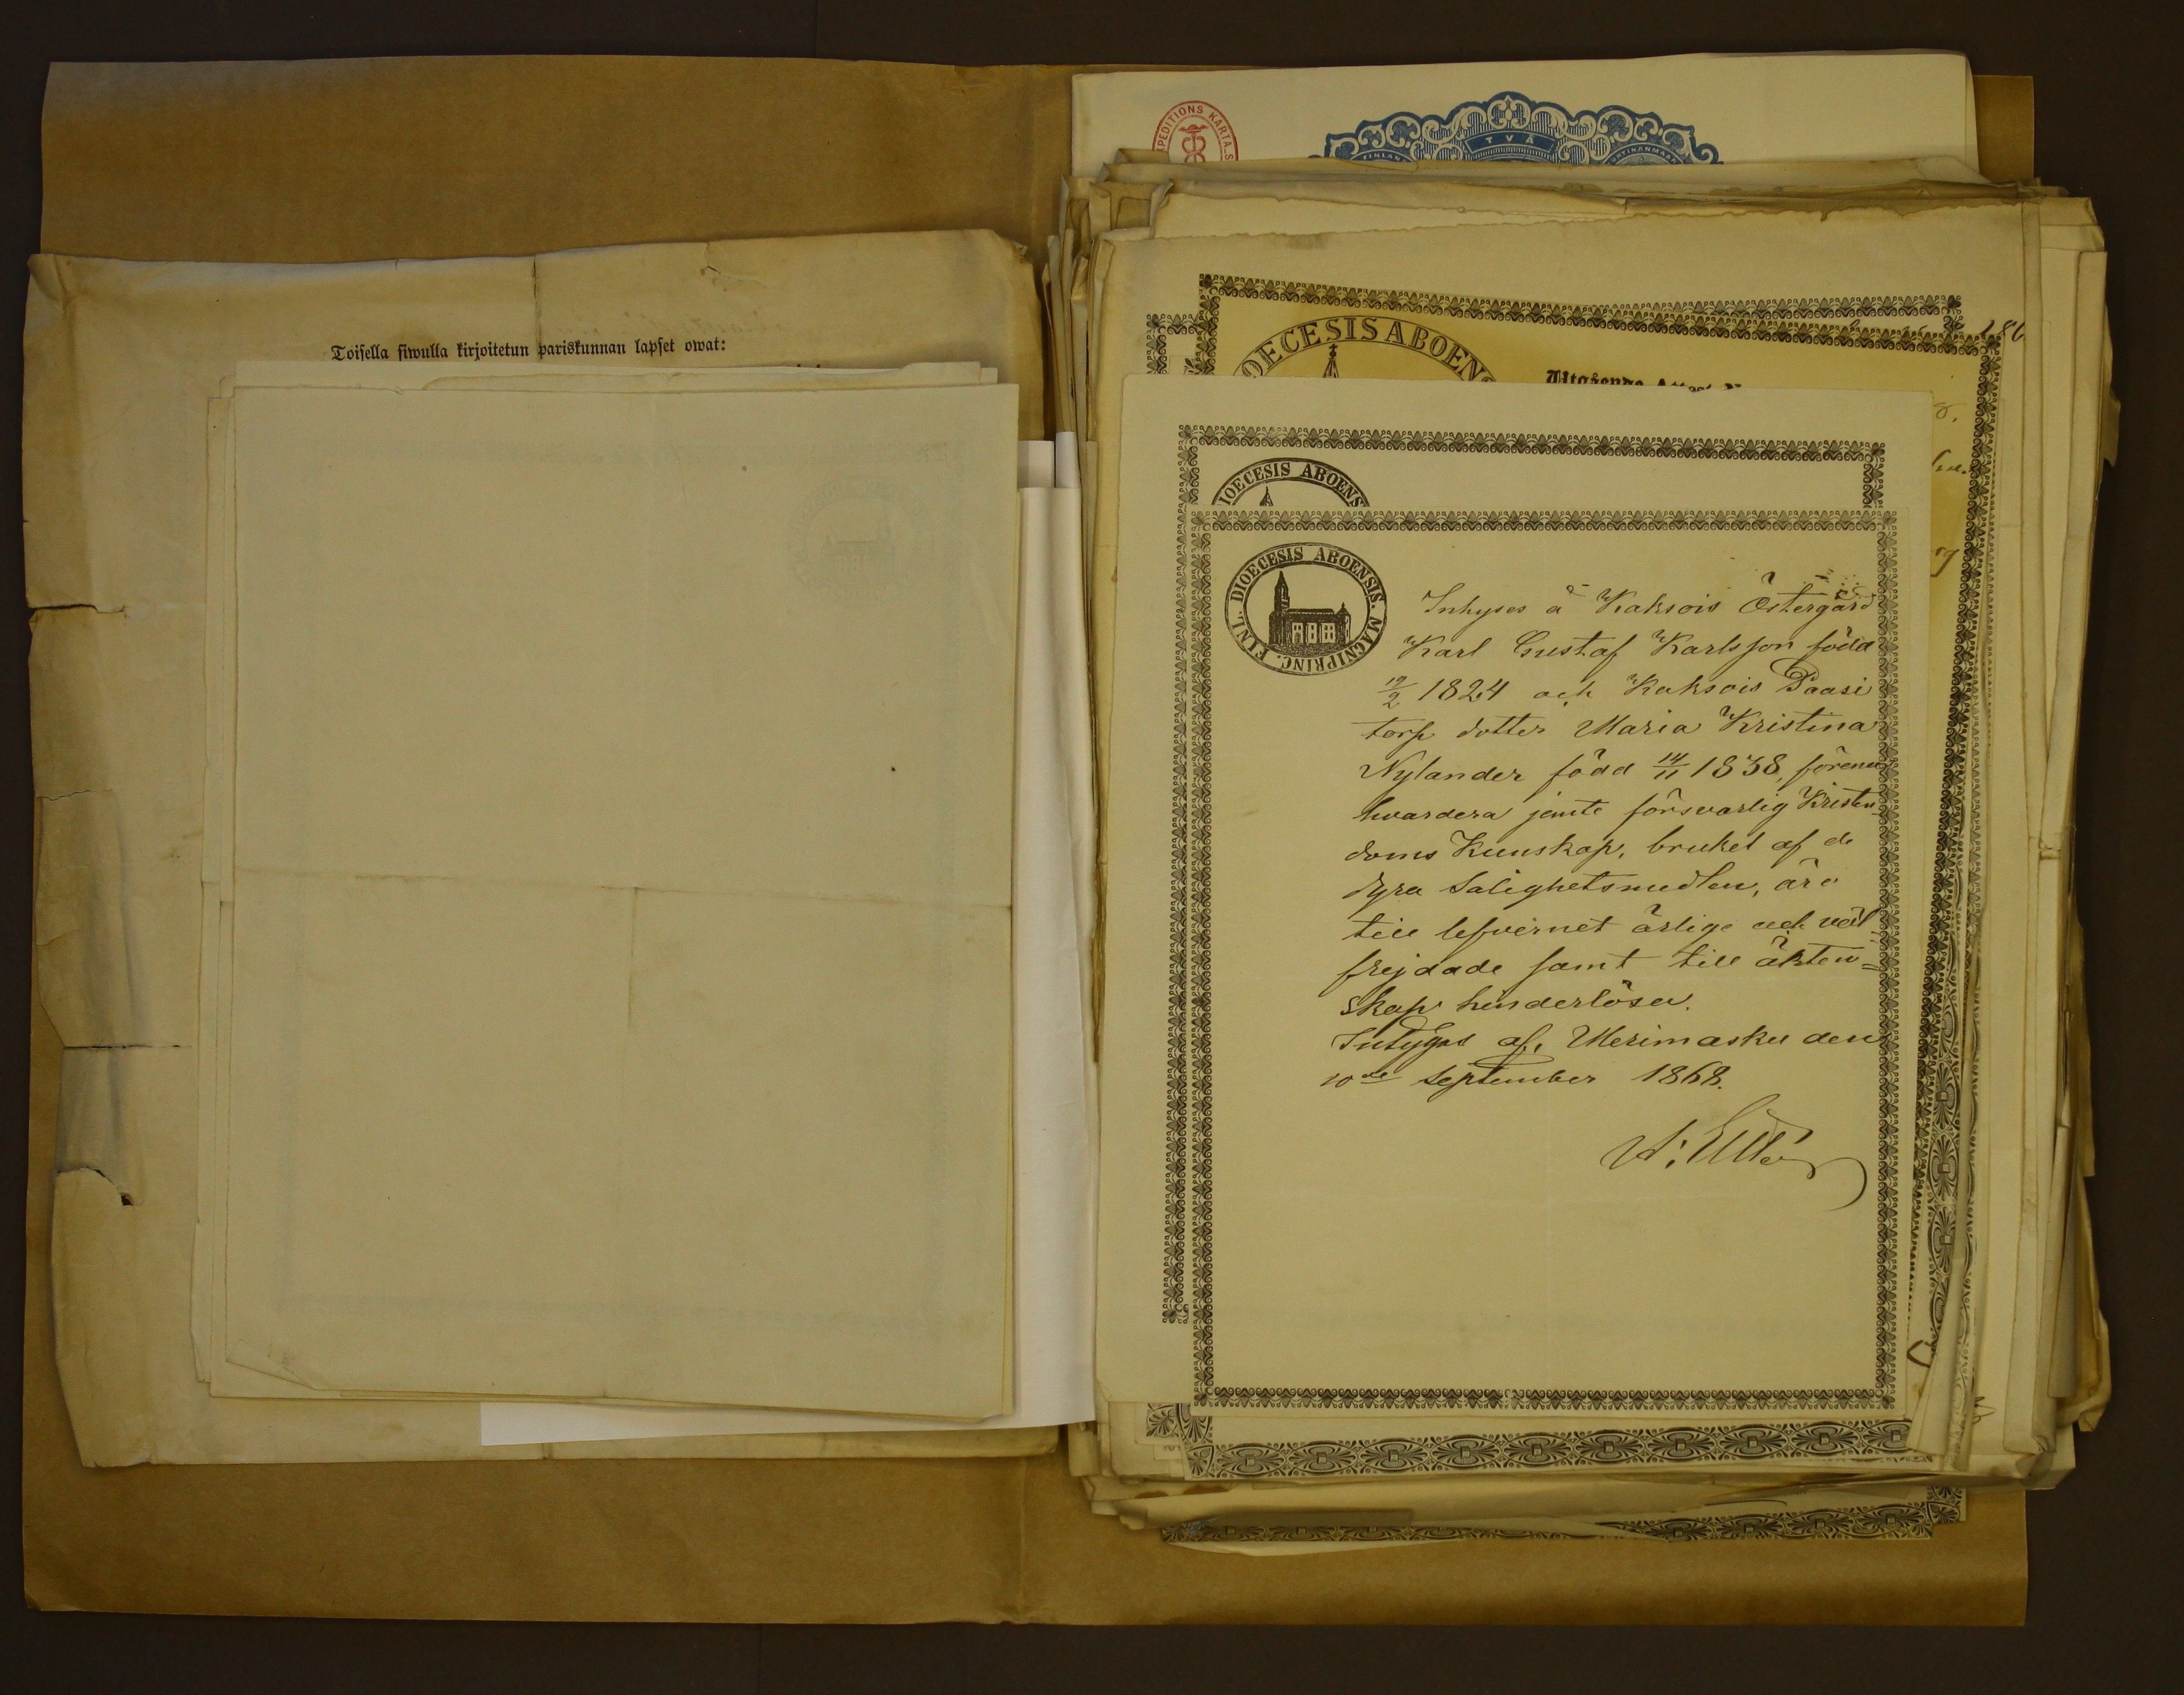 Toisella siwulla kirjoitetun pariskunnan lapset owat:
TVÅ
DIOECESIS ABOENSIS. MAGNIPRINC. FINL.
Inhyses å Kaksois Östergård
Karl Gustaf Karlsson född
19/2 1824 och Kaksois Paasi
torp dotter Maria Kristina
Nylander född 14/11 1838, förena
hvardera jemte försvarlig Kristen-
doms Kunskap, bruket af de
dyra Salighetsmedlen, äro
till lefvernet ärlige och väl-
frejdade samt till äkten=
skap hinderlösa.
Intygas af, Merimasku den
10de September 1868.